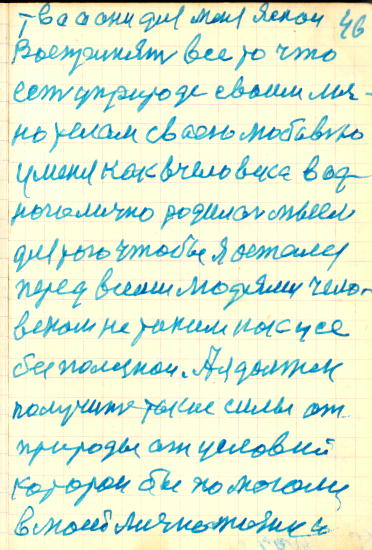 тва они для меня ясной 46
Воспринять все то что
есть у природе своим мя-
но телом своею любовью
у меня как в человека в од-
ного лично родилась мысль
для того чтобы я остался
перед всеми людьми чело-
веком не таким как усе
бесполезной. А я должен
получить такие силы от
природы от условий
которой бы помогали
в моей личной